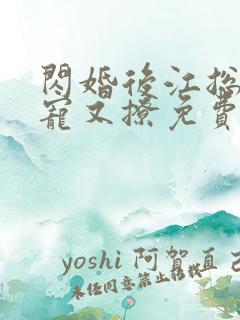 閃婚後江總
寵又撩免費
yoshi 阿賀直己
未任同意禁止轉載